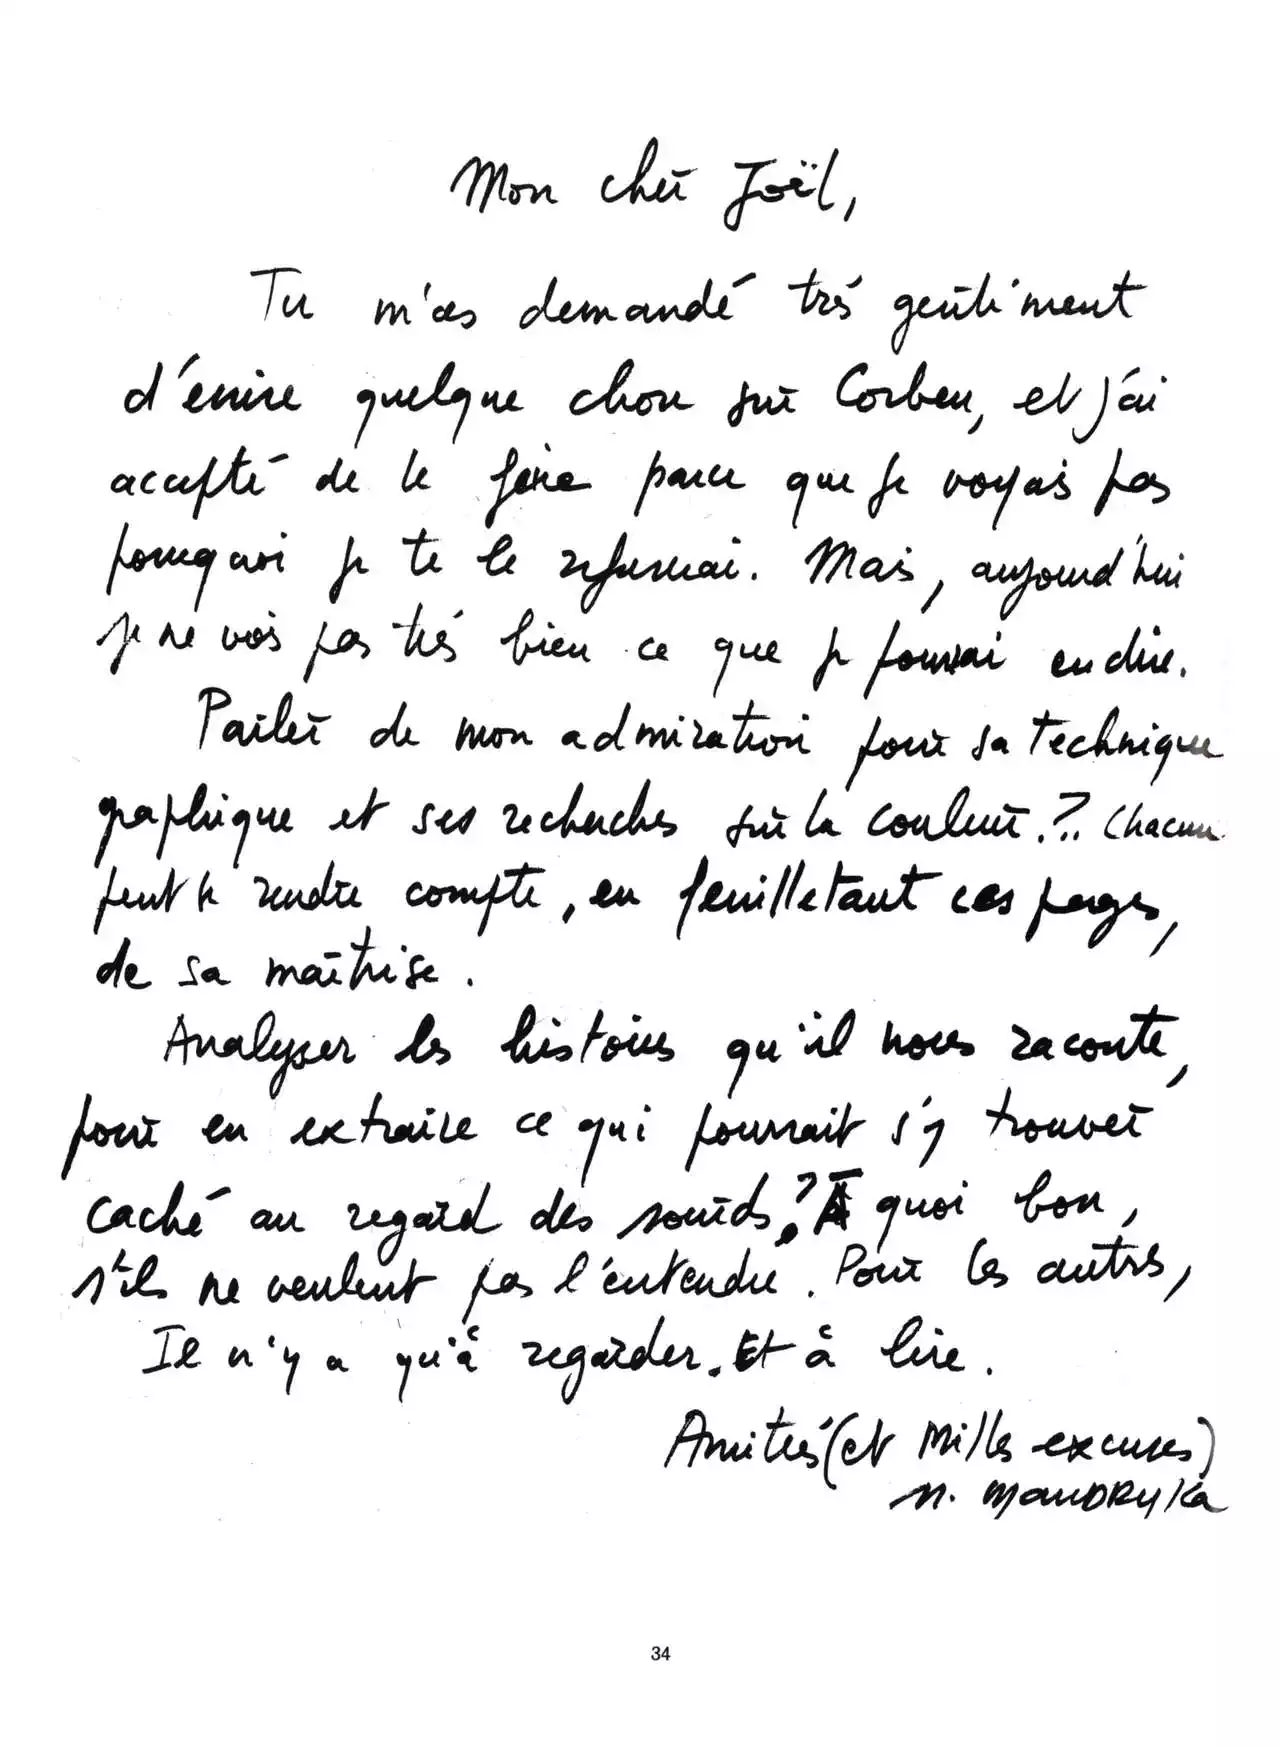 Mon cher Joël,
Tu m'as demandé très gentiment
d'écrire quelque chose sur Corben, et j'ai
accepté de le faire parce que je voyais pas
pourquoi je te le refuserai. Mais, aujourd'hui
je ne vois pas très bien ce que je pourrai en dire.
Parler de mon admiration pour sa technique
graphique et ses recherches sur la couleur ?.. Chacun
peut se rendre compte, en feuilletant ces pages,
de sa maîtrise.
Analyser les histoires qu'il nous raconte,
pour en extraire ce qui pourrait s'y trouver
caché au regard des sourds ? À quoi bon,
s'ils ne veulent pas l'entendre. Pour les autres,
Il n'y a qu'à regarder. Et à lire.
Amitiés (et Milles excuses)
N. MANDRYKA
34